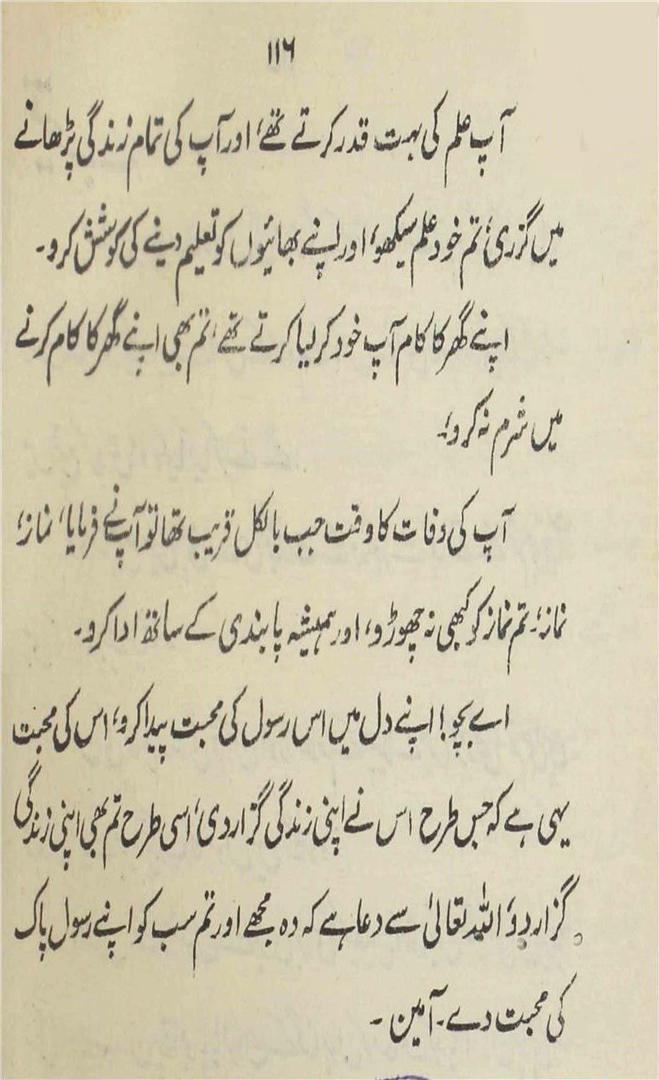 ۱۱۶
آپ علم کی بہت قدر کرتے تھے، اور آپ کی تمام زندگی پڑھانے
میں گزری، تم خود علم سیکھو، اور اپنے بھائیوں کو تعلیم دینے کی کوشش کرو۔
اپنے گھر کا کام آپ خود کر لیا کرتے تھے، تم بھی اپنے گھر کا کام کرنے
میں شرم نہ کرو،
آپ کی وفات کا وقت جب بالکل قریب تھا تو آپ نے فرمایا، نماز،
نماز، تم نماز کو کبھی نہ چھوڑو، اور ہمیشہ پابندی کے ساتھ ادا کرو۔
اے بچو! اپنے دل میں اس رسول کی محبت پیدا کرو، اس کی محبت
یہی ہے کہ جس طرح اس نے اپنی زندگی گزار دی، اسی طرح تم بھی اپنی زندگی
گزار دو، اللہ تعالیٰ سے دعا ہے کہ وہ مجھے اور تم سب کو اپنے رسول پاک
کی محبت دے۔ آمین ۔